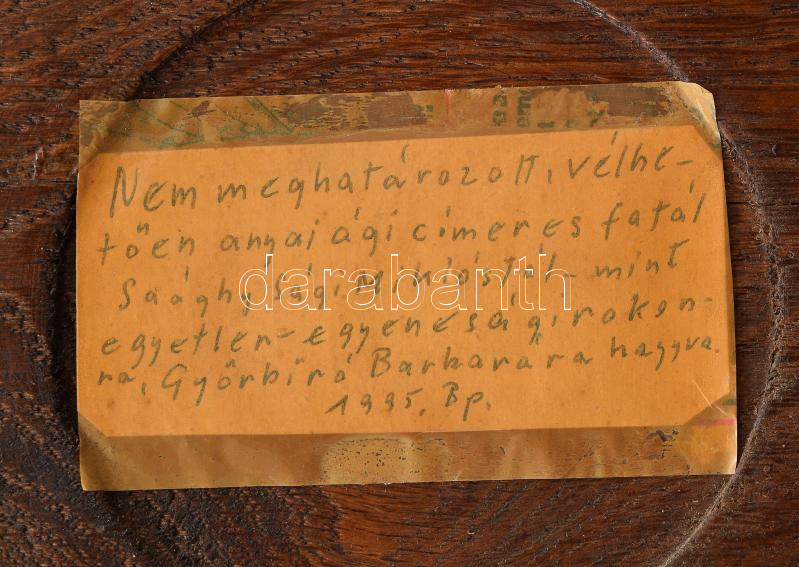 Nem meghatározott, vélhe-
tően anyai ági címeres fatál
Saághy, Sági Miklóstól - mint
egyetlen - egyenesági rokon-
ra, Győrbíró Barbarára hagyva.
1995. Bp.
darabanth